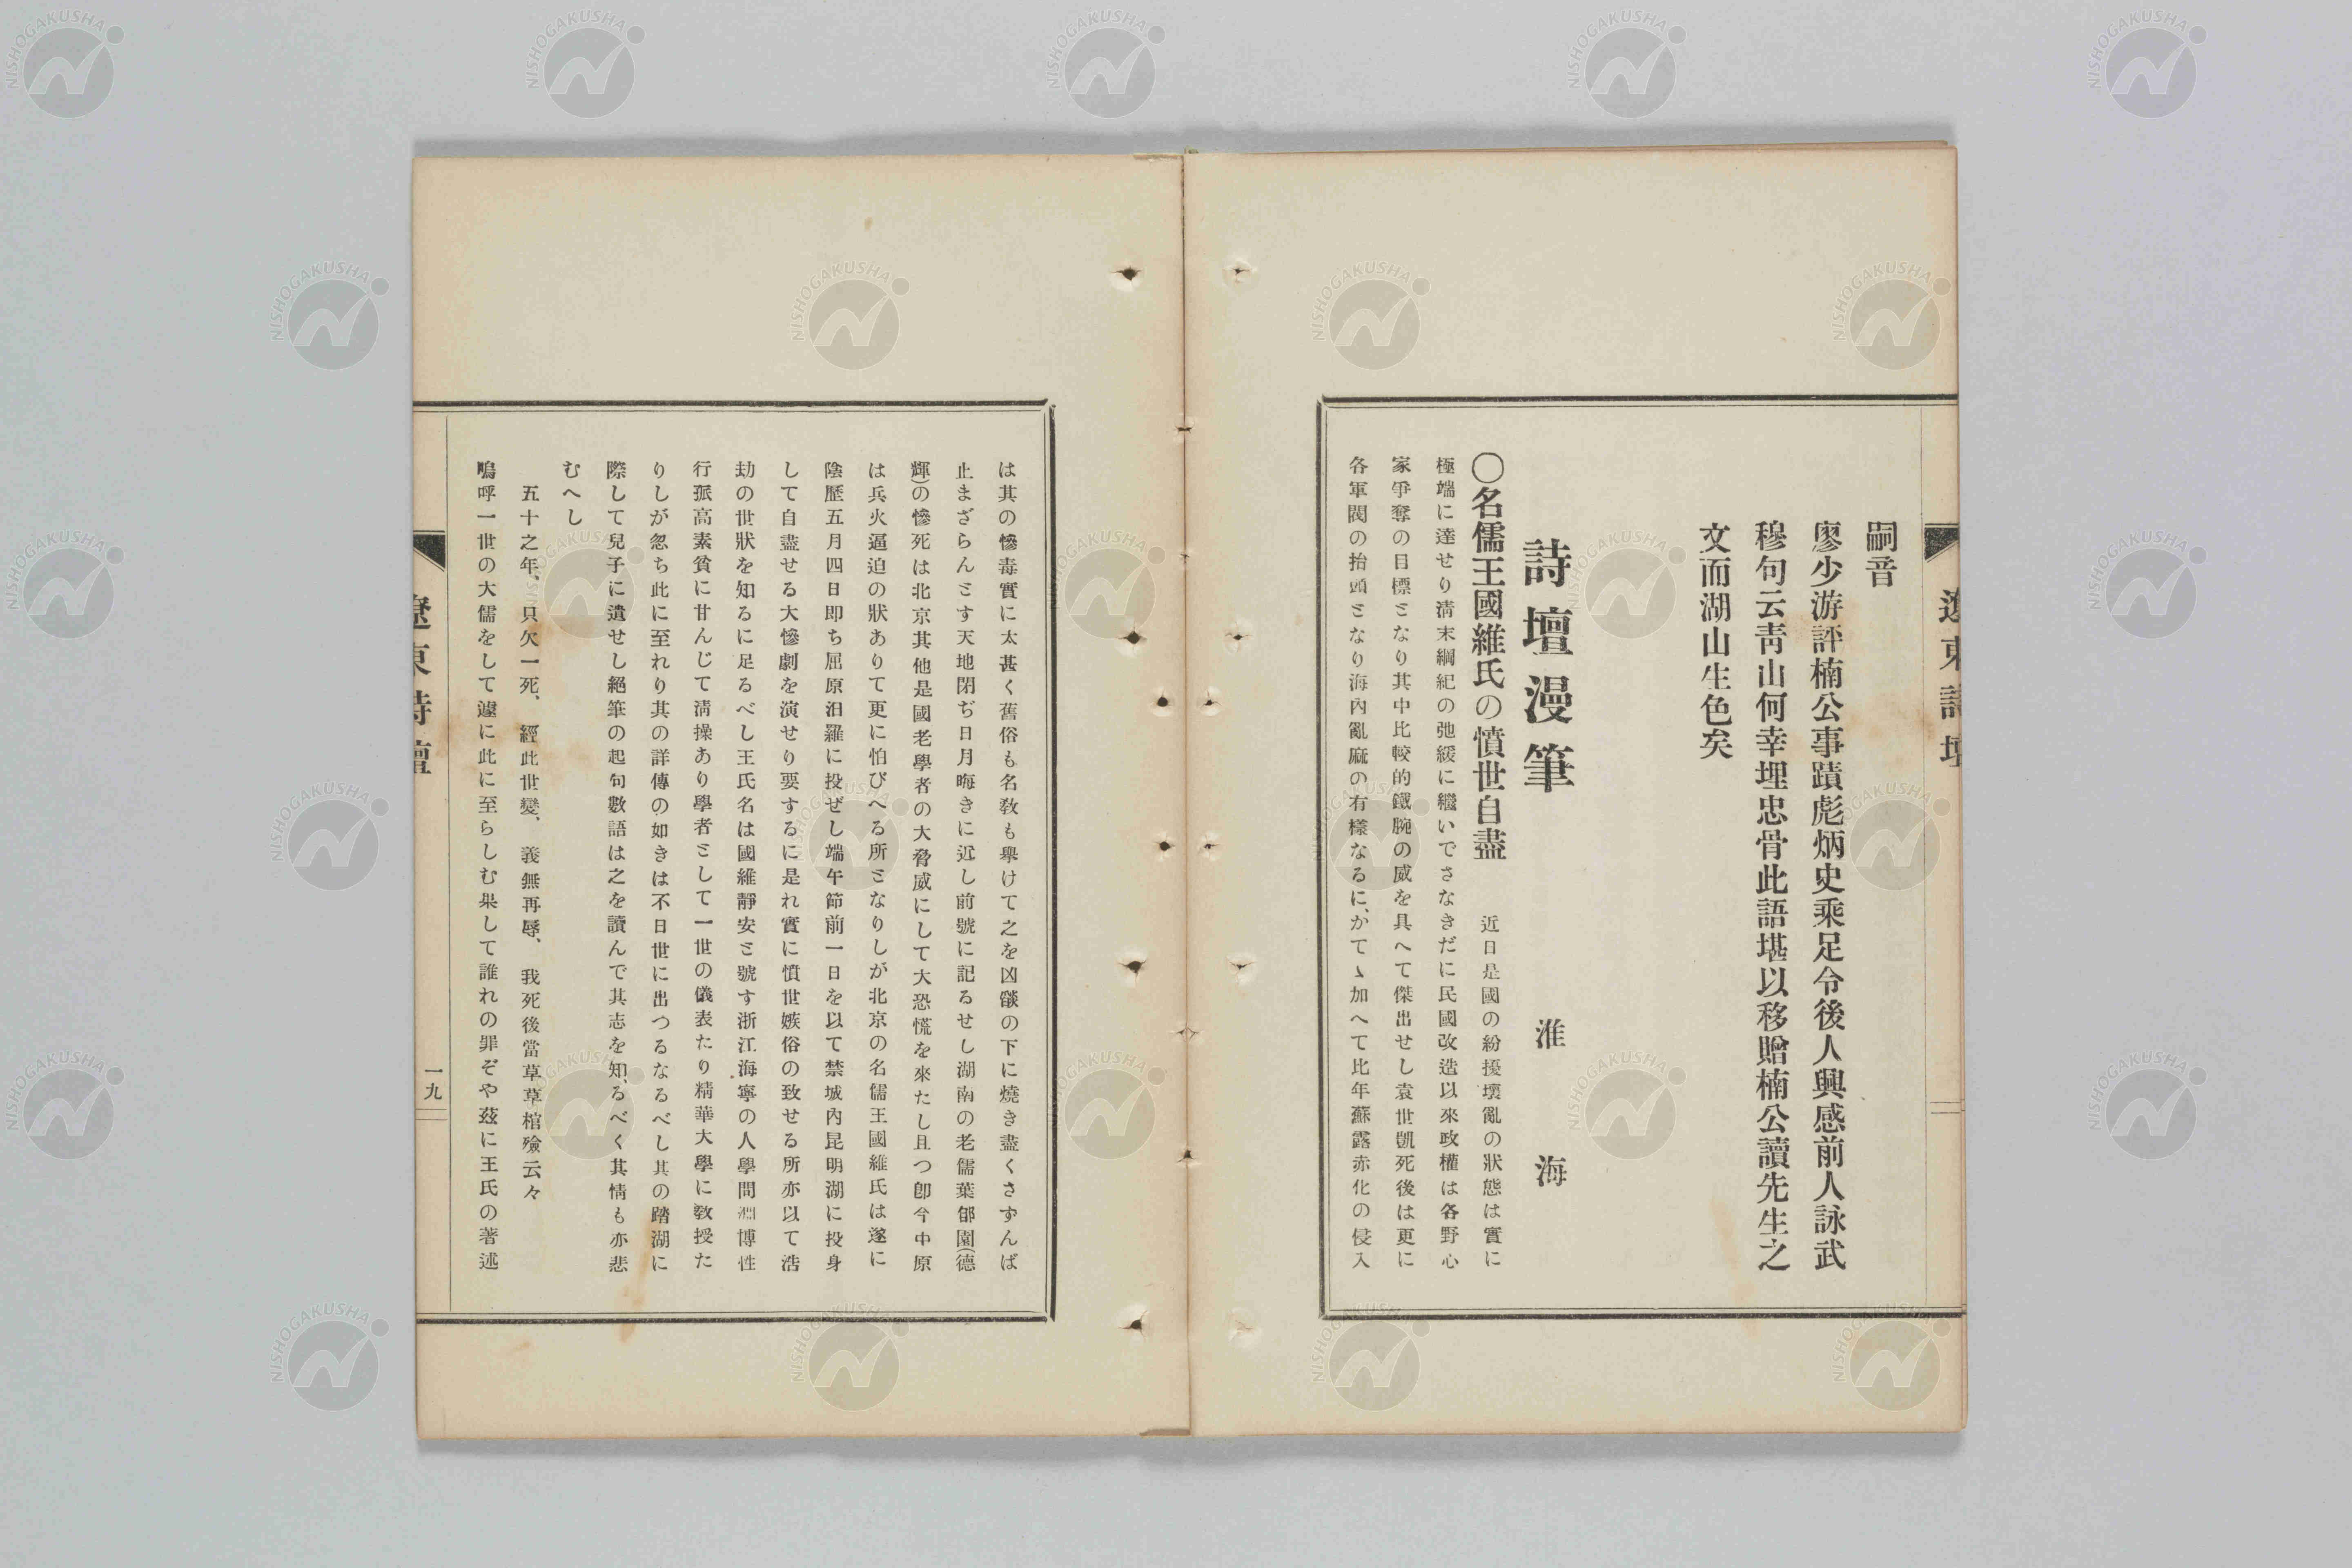 嗣音
廖少游評楠公事蹟彪炳史乘足令後人興感前人詠武
穆句云靑山何幸埋忠骨此語堪以移贈楠公讀先生之
文而湖山生色矣
詩壇漫筆 淮海
〇名儒王國維氏の憤世自盡 近日是國の紛擾壞亂の狀態は實に
極端に達せり淸末綱紀の弛緩に繼いでさなきだに民國改造以來政權は各野心
家爭奪の目標となり其中比較的鐵腕の威を具へて傑出せし袁世凱死後は更に
各軍閥の抬頭となり海內亂麻の有樣なるに、かてゝ加へて比年蘇露赤化の侵入
は其の慘毒實に太甚く舊俗も名敎も擧けて之を凶燄の下に燒き盡くさずんば
止まざらんとす天地閉ぢ日月晦きに近し前號に記るせし湖南の老儒葉郋園(德
輝)の慘死は北京其他是國老學者の大脅威にして大恐慌を來たし且つ卽今中原
は兵火逼迫の狀ありて更に怕びへる所となりしが北京の名儒王國維氏は遂に
陰歷五月四日卽ち屈原汨羅に投ぜし端午節前一日を以て禁城內昆明湖に投身
して自盡せる大慘劇を演せり要するに是れ實に憤世嫉俗の致せる所亦以て浩
劫の世狀を知るに足るべし王氏名は國維靜安と號す浙江海寧の人學問淵博性
行孤高素貧に甘んじて淸操あり學者として一世の儀表たり精華大學に敎授た
りしが忽ち此に至れり其の詳傳の如きは不日世に出つるなるべし其の踏湖に
際して兒子に遺せし絕筆の起句數語は之を讀んで其志を知、るべく其情も亦悲
むへし
五十之年、只欠一死、經此世變、義無再辱、我死後當草草棺殮云々
嗚呼一世の大儒をして遽に此に至らしむ果して誰れの罪ぞや玆に王氏の著述
遼東詩壇
一九